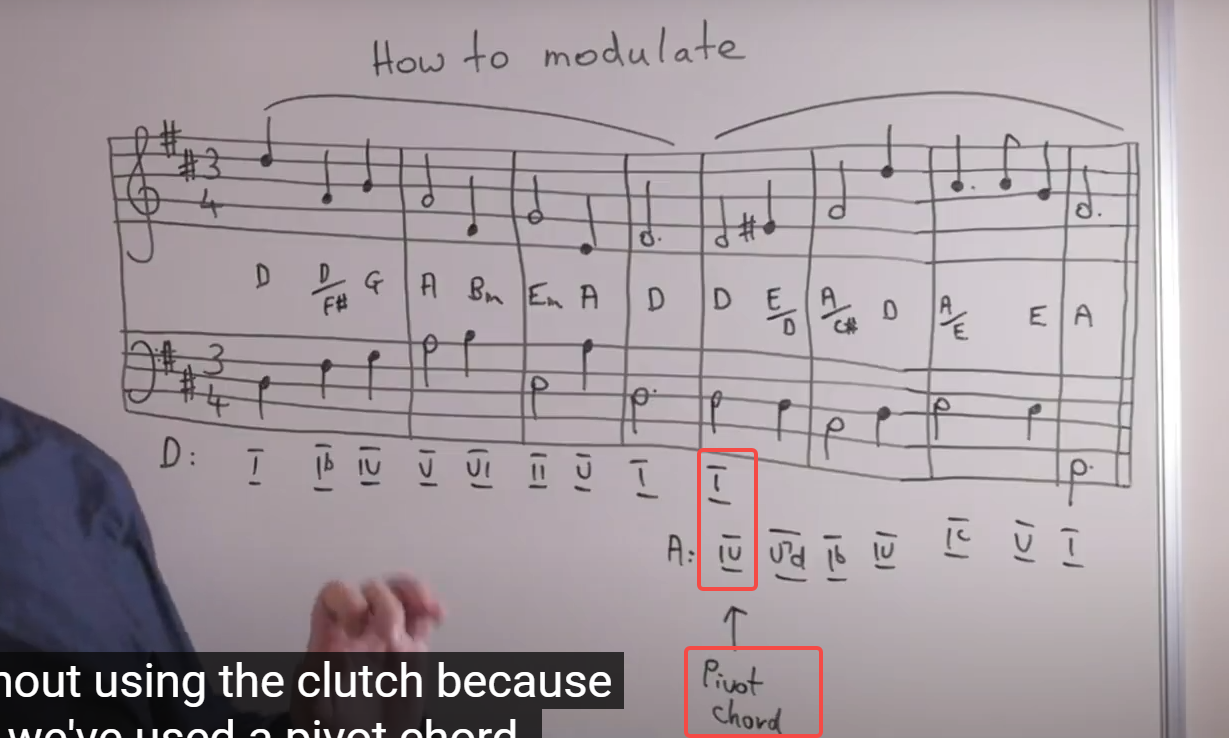 How to modulate
# # 3
4
#
D D/F# G A Bm Em A D D E/D A/C# D A/E E A
# # 3
4
D: I Ib IV V VI II V I I
A: IV V7d Ib IV Ic V I
↑
Pivot
chord
hout using the clutch because
we've used a pivot chord